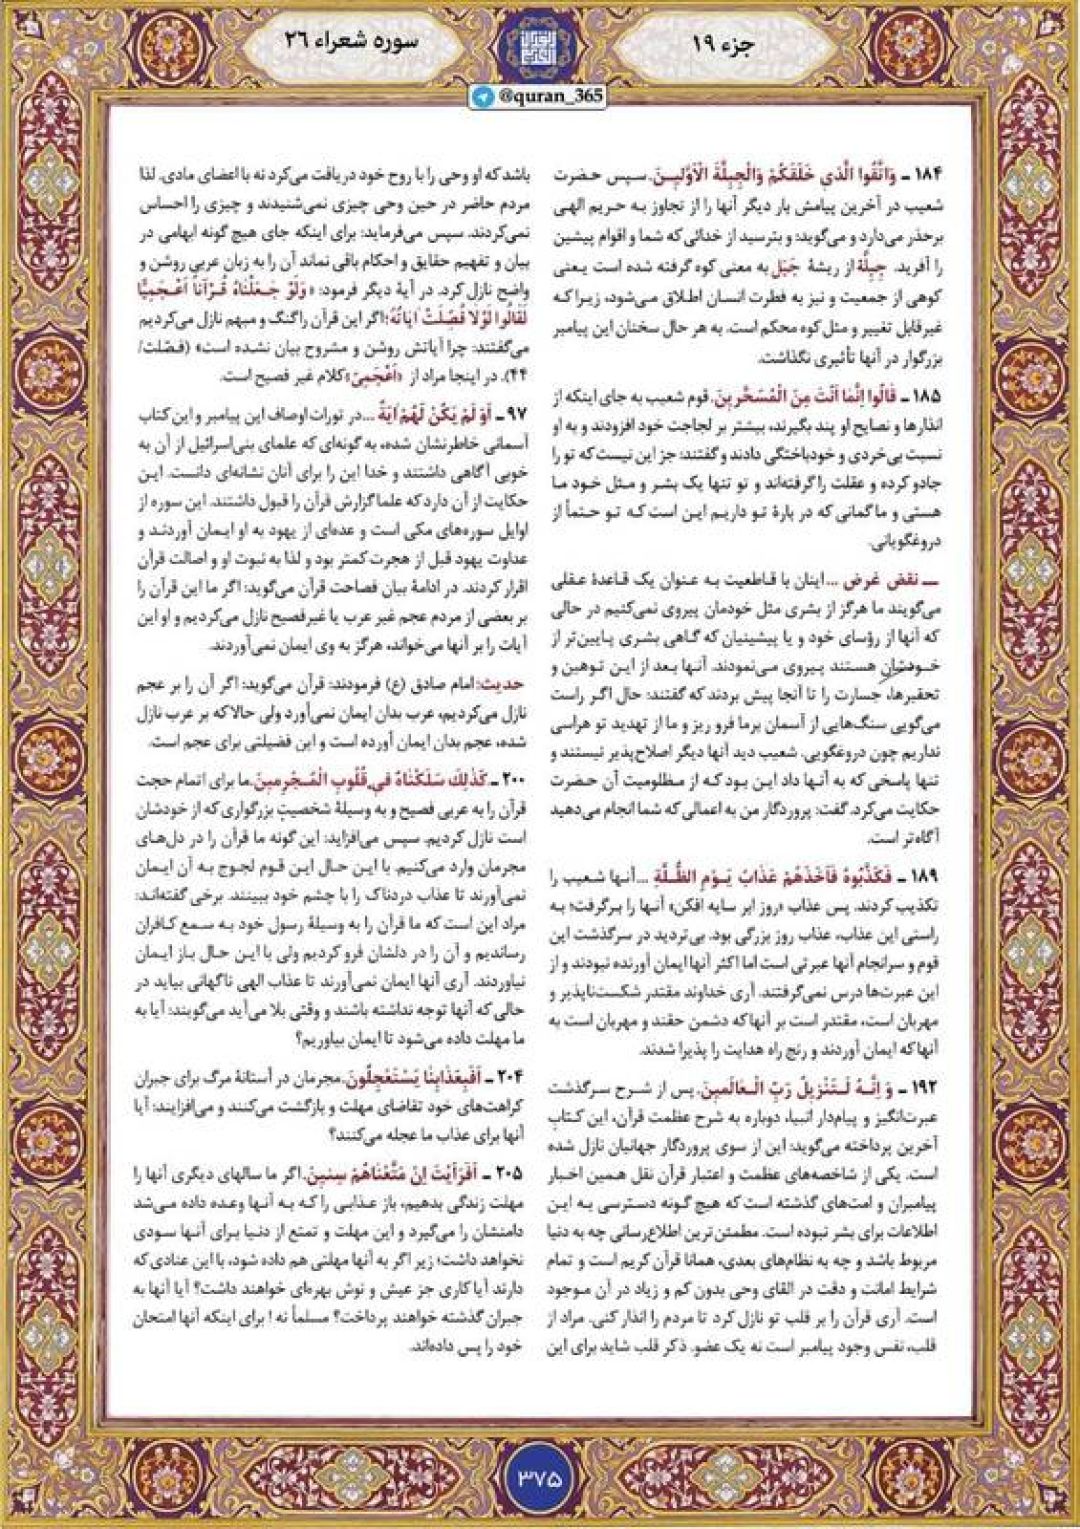 جزء ۱۹
سوره شعراء ۲۶
@quran_365
۱۸۴ ـ وَاتَّقُوا الَّذي خَلَقَكُمْ وَالْجِبِلَّةَ الْاَوَّلينَ. سپس حضرت
شعیب در آخرین پیامش بار دیگر آنها را از تجاوز به حریم الهی
برحذر می‌دارد و می‌گوید: و بترسید از خدائی که شما و اقوام پیشین
را آفرید. جِبِلَّة از ریشهٔ جَبَل به معنی کوه گرفته شده است یعنی
کوهی از جمعیت و نیز به فطرت انسان اطلاق می‌شود، زیرا که
غیرقابل تغییر و مثل کوه محکم است. به هر حال سخنان این پیامبر
بزرگوار در آنها تأثیری نگذاشت.
۱۸۵ ـ قالُوا اِنَّما اَنْتَ مِنَ الْمُسَحَّرينَ. قوم شعیب به جای اینکه از
انذارها و نصایح او پند بگیرند، بیشتر بر لجاجت خود افزودند و به او
نسبت بی‌خردی و خودباختگی دادند و گفتند: جز این نیست که تو را
جادو کرده و عقلت را گرفته‌اند و تو تنها یک بشر و مثل خود ما
هستی و ما گمانی که در بارهٔ تو داریم این است که تو حتماً از
دروغگویانی.
ـــ نقض غرض ... اینان با قاطعیت به عنوان یک قاعدهٔ عقلی
می‌گویند ما هرگز از بشری مثل خودمان پیروی نمی‌کنیم در حالی
که آنها از رؤسای خود و یا پیشینیان که گاهی بشری پایین‌تر از
خودشان هستند پیروی می‌نمودند. آنها بعد از این توهین و
تحقیرها، جسارت را تا آنجا پیش بردند که گفتند: حال اگر راست
می‌گویی سنگ‌هایی از آسمان برما فرو ریز و ما از تهدید تو هراسی
نداریم چون دروغگویی. شعیب دید آنها دیگر اصلاح‌پذیر نیستند و
تنها پاسخی که به آنها داد این بود که از مظلومیت آن حضرت
حکایت می‌کرد. گفت: پروردگار من به اعمالی که شما انجام می‌دهید
آگاه‌تر است.
۱۸۹ ـ فَكَذَّبُوهُ فَاَخَذَهُمْ عَذابُ يَوْمِ الظُّلَّةِ ... آنها شعیب را
تکذیب کردند. پس عذاب «روز ابر سایه افکن» آنها را برگرفت؛ به
راستی این عذاب، عذاب روز بزرگی بود. بی‌تردید در سرگذشت این
قوم و سرانجام آنها عبرتی است اما اکثر آنها ایمان آورنده نبودند و از
این عبرت‌ها درس نمی‌گرفتند. آری خداوند مقتدر شکست‌ناپذیر و
مهربان است، مقتدر است بر آنها که دشمن حقند و مهربان است به
آنها که ایمان آوردند و رنج راه هدایت را پذیرا شدند.
۱۹۲ ـ وَ اِنَّهُ لَتَنْزيلُ رَبِّ الْعالَمينَ. پس از شرح سرگذشت
عبرت‌انگیز و پیام‌دار انبیا، دوباره به شرح عظمت قرآن، این کتاب
آخرین پرداخته می‌گوید: این از سوی پروردگار جهانیان نازل شده
است. یکی از شاخصه‌های عظمت و اعتبار قرآن نقل همین اخبار
پیامبران و امت‌های گذشته است که هیچ گونه دسترسی به این
اطلاعات برای بشر نبوده است. مطمئن‌ترین اطلاع‌رسانی چه به دنیا
مربوط باشد و چه به نظام‌های بعدی، همانا قرآن کریم است و تمام
شرایط امانت و دقت در القای وحی بدون کم و زیاد در آن موجود
است. آری قرآن را بر قلب تو نازل کرد تا مردم را انذار کنی. مراد از
قلب، نفس وجود پیامبر است نه یک عضو. ذکر قلب شاید برای این
باشد که او وحی را با روح خود دریافت می‌کرد نه با اعضای مادی. لذا
مردم حاضر در حین وحی چیزی نمی‌شنیدند و چیزی را احساس
نمی‌کردند. سپس می‌فرماید: برای اینکه جای هیچ گونه ابهامی در
بیان و تفهیم حقایق و احکام باقی نماند آن را به زبان عربی روشن و
واضح نازل کرد. در آیهٔ دیگر فرمود: «وَلَوْ جَعَلْناهُ قُرْآناً اَعْجَمِيًّا
لَقالُوا لَوْلا فُصِّلَتْ اياتُهُ؛ اگر این قرآن را گنگ و مبهم نازل می‌کردیم
می‌گفتند: چرا آیاتش روشن و مشروح بیان نشده است» (فصّلت/
۴۴). در اینجا مراد از «اَعْجَمِيّ» کلام غیر فصیح است.
۹۷ ـ اَوَ لَمْ يَكُنْ لَهُمْ ايَةً ... در تورات اوصاف این پیامبر و این کتاب
آسمانی خاطرنشان شده، به گونه‌ای که علمای بنی‌اسرائیل از آن به
خوبی آگاهی داشتند و خدا این را برای آنان نشانه‌ای دانست. این
حکایت از آن دارد که علما گزارش قرآن را قبول داشتند. این سوره از
اوایل سوره‌های مکی است و عده‌ای از یهود به او ایمان آوردند و
عداوت یهود قبل از هجرت کمتر بود و لذا به نبوت او و اصالت قرآن
اقرار کردند. در ادامهٔ بیان فصاحت قرآن می‌گوید: اگر ما این قرآن را
بر بعضی از مردم عجم غیر عرب یا غیرفصیح نازل می‌کردیم و او این
آیات را بر آنها می‌خواند، هرگز به وی ایمان نمی‌آوردند.
حدیث: امام صادق (ع) فرمودند: قرآن می‌گوید: اگر آن را بر عجم
نازل می‌کردیم، عرب بدان ایمان نمی‌آورد ولی حالا که بر عرب نازل
شده، عجم بدان ایمان آورده است و این فضیلتی برای عجم است.
۲۰۰ ـ كَذلِكَ سَلَكْناهُ في قُلُوبِ الْمُجْرِمينَ. ما برای اتمام حجت
قرآن را به عربی فصیح و به وسیلهٔ شخصیتِ بزرگواری که از خودشان
است نازل کردیم. سپس می‌افزاید: این گونه ما قرآن را در دل‌های
مجرمان وارد می‌کنیم. با این حال این قوم لجوج به آن ایمان
نمی‌آورند تا عذاب دردناک را با چشم خود ببینند. برخی گفته‌اند:
مراد این است که ما قرآن را به وسیلهٔ رسول خود به سمع کافران
رساندیم و آن را در دلشان فرو کردیم ولی با این حال باز ایمان
نیاوردند. آری آنها ایمان نمی‌آورند تا عذاب الهی ناگهانی بیاید در
حالی که آنها توجه نداشته باشند و وقتی بلا می‌آید می‌گویند: آیا به
ما مهلت داده می‌شود تا ایمان بیاوریم؟
۲۰۴ ـ اَفَبِعَذابِنا يَسْتَعْجِلُونَ. مجرمان در آستانهٔ مرگ برای جبران
کراهت‌های خود تقاضای مهلت و بازگشت می‌کنند و می‌افزایند: آیا
آنها برای عذاب ما عجله می‌کنند؟
۲۰۵ ـ اَفَرَاَيْتَ اِنْ مَتَّعْناهُمْ سِنينَ. اگر ما سالهای دیگری آنها را
مهلت زندگی بدهیم، باز عذابی را که به آنها وعده داده می‌شد
دامنشان را می‌گیرد و این مهلت و تمتع از دنیا برای آنها سودی
نخواهد داشت؛ زیر اگر به آنها مهلتی هم داده شود، با این عنادی که
دارند آیا کاری جز عیش و نوش بهره‌ای خواهند داشت؟ آیا آنها به
جبران گذشته خواهند پرداخت؟ مسلماً نه! برای اینکه آنها امتحان
خود را پس داده‌اند.
۳۷۵